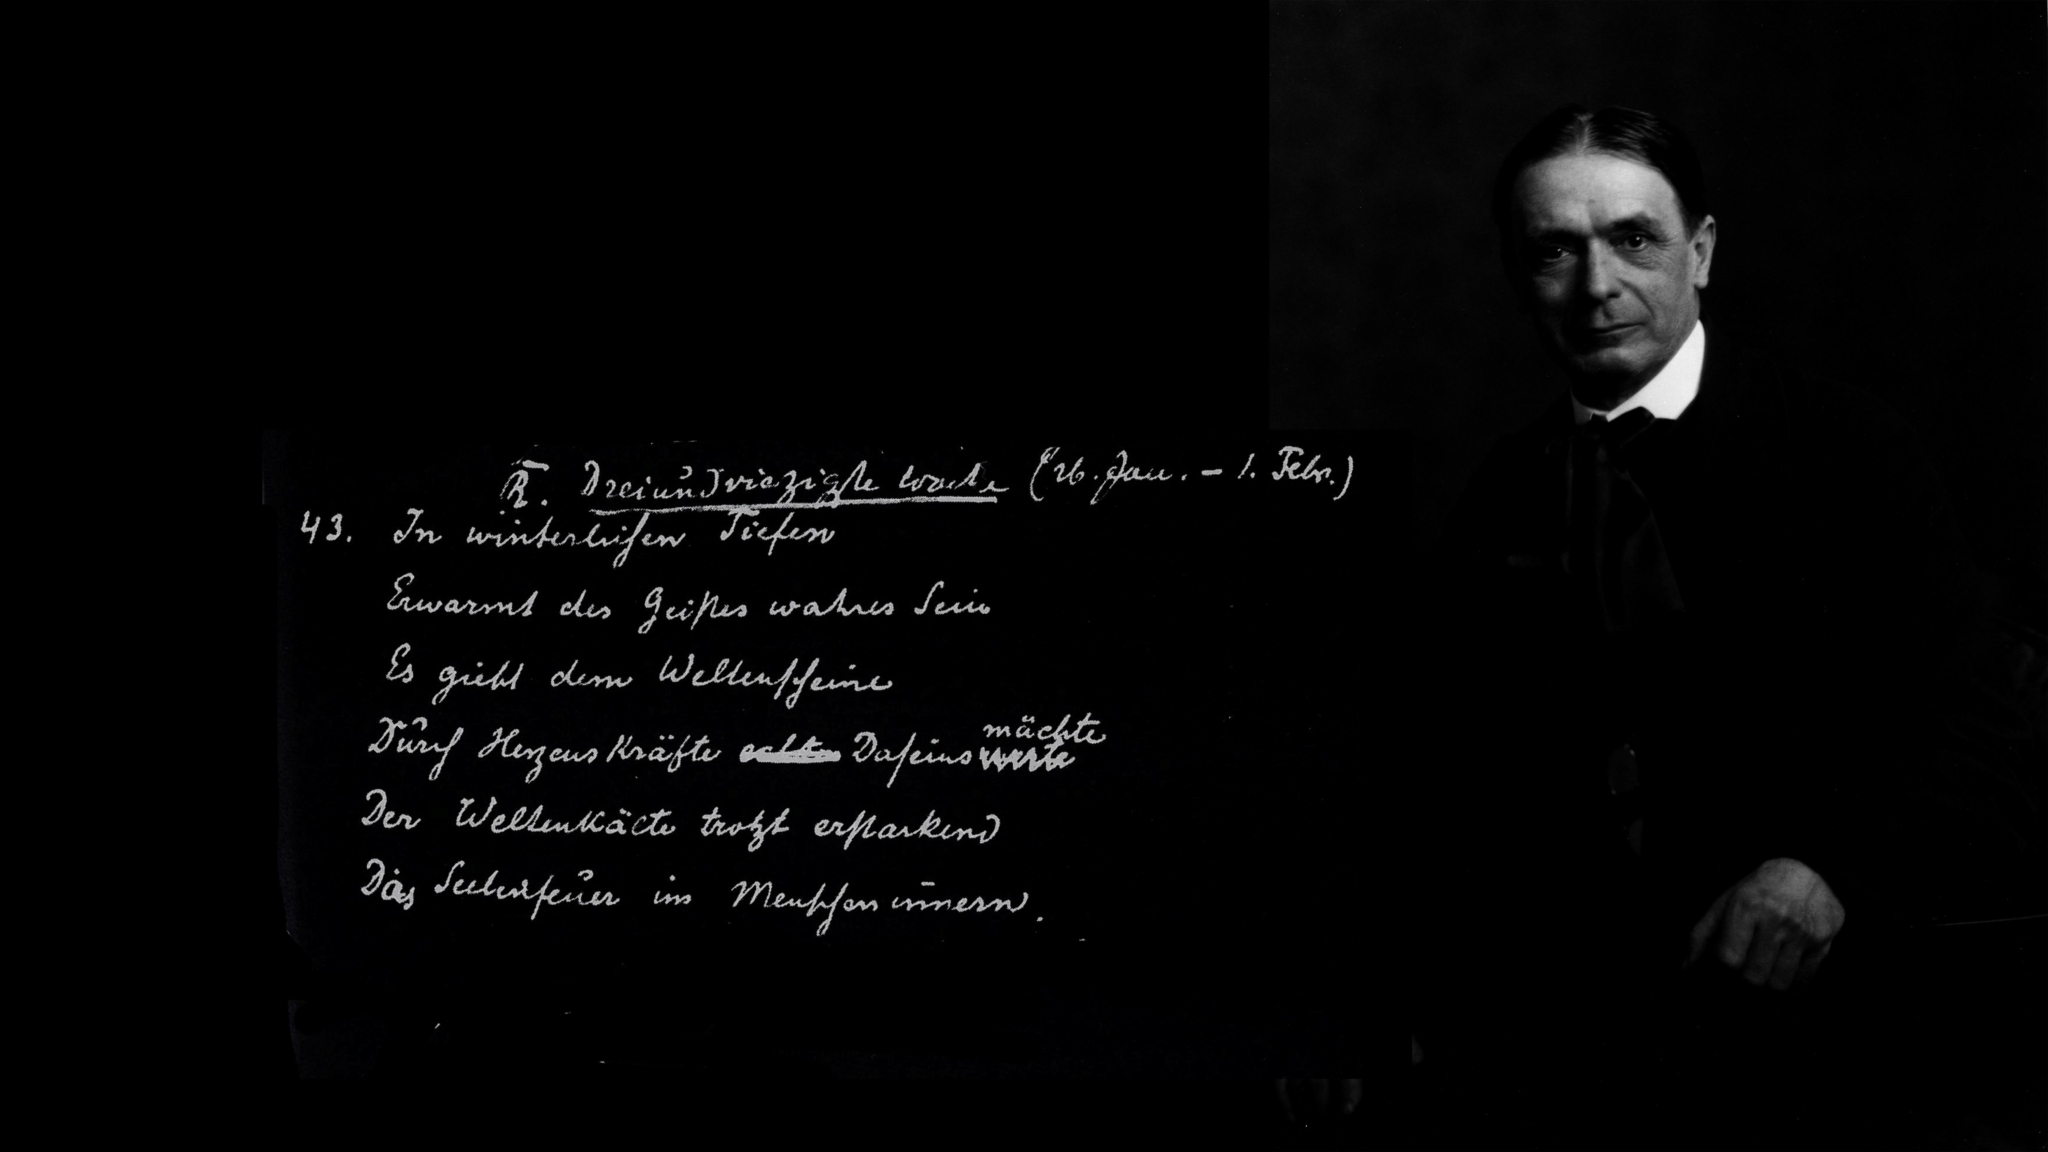 R. Dreiundvierzigste Woche (26. Jan. – 1. Febr.)
43. In winterlichen Tiefen
Erwarmt des Geistes wahres Sein
Es giebt dem Weltenscheine
mächte
Durch Herzenskräfte Daseins
Der Weltenkälte trotzt erstarkend
Das Seelenfeuer im Menscheninnern.